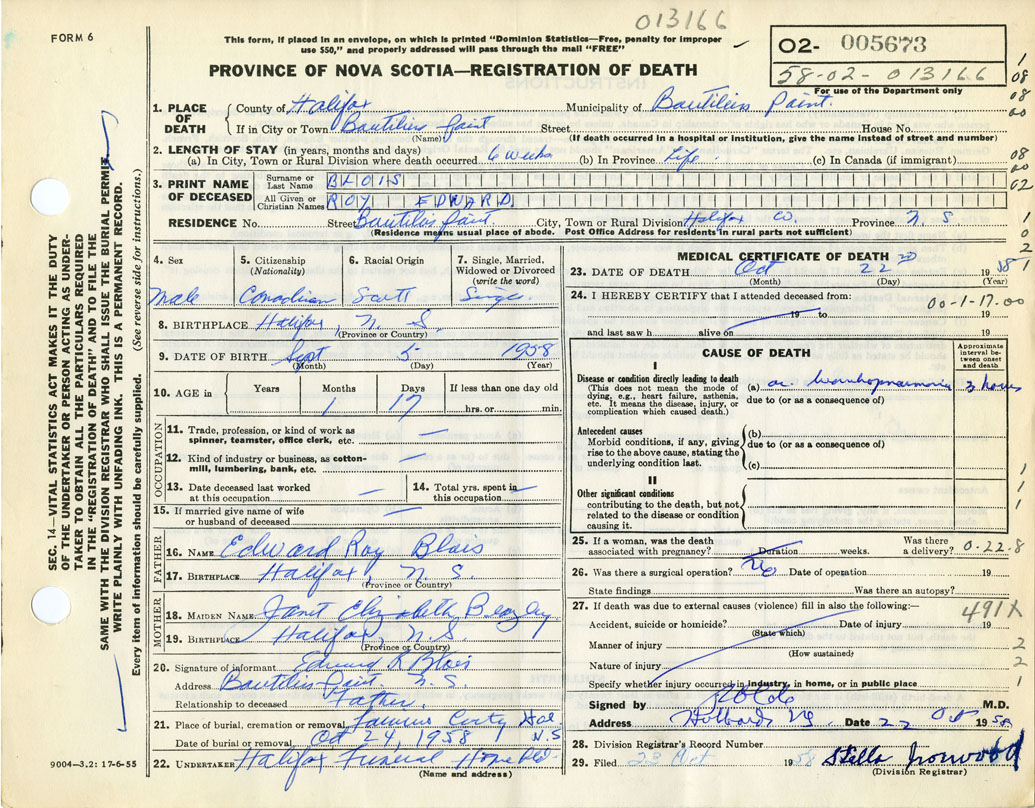 013166
FORM 6
This form, if placed in an envelope, on which is printed "Dominion Statistics—Free, penalty for improper
use $50," and properly addressed will pass through the mail "FREE"
O2- 005673
58-02-013166
For use of the Department only
PROVINCE OF NOVA SCOTIA—REGISTRATION OF DEATH
1. PLACE OF DEATH
County of Halifax Municipality of
If in City or Town Street House No.
(Name) (If death occurred in a hospital or institution, give the name instead of street and number)
2. LENGTH OF STAY (in years, months and days)
(a) In City, Town or Rural Division where death occurred 6 weeks (b) In Province Life. (c) In Canada (if immigrant)
3. PRINT NAME OF DECEASED
Surname or Last Name BLOIS
All Given or Christian Names ROY EDWARD
RESIDENCE No. Street City, Town or Rural Division Halifax Co. Province N S
(Residence means usual place of abode. Post Office Address for residents in rural parts not sufficient)
4. Sex
Male
5. Citizenship
(Nationality)
Canadian
6. Racial Origin
7. Single, Married,
Widowed or Divorced
(write the word)
8. BIRTHPLACE Halifax, N. S.
(Province or Country)
9. DATE OF BIRTH Sept 5 1958
(Month) (Day) (Year)
10. AGE in
Years Months Days If less than one day old
1 17 hrs. or min.
OCCUPATION
11. Trade, profession, or kind of work as
spinner, teamster, office clerk, etc. —
12. Kind of industry or business, as cotton-
mill, lumbering, bank, etc. —
13. Date deceased last worked
at this occupation —
14. Total yrs. spent in
this occupation —
15. If married give name of wife
or husband of deceased —
FATHER
16. NAME Edward Roy Blois
17. BIRTHPLACE Halifax, N. S.
(Province or Country)
MOTHER
18. MAIDEN NAME Janet Elizabeth
19. BIRTHPLACE Halifax, N.S.
(Province or Country)
20. Signature of informant Edward R Blois
Address N. S.
Relationship to deceased Father.
21. Place of burial, cremation or removal
Date of burial or removal Oct 24, 1958 N.S
22. UNDERTAKER Halifax Funeral Home
(Name and address)
MEDICAL CERTIFICATE OF DEATH
23. DATE OF DEATH Oct 22nd 1958
(Month) (Day) (Year)
24. I HEREBY CERTIFY that I attended deceased from:
00-1-17.00
19 to 19
and last saw h alive on 19
CAUSE OF DEATH
Approximate
interval be-
tween onset
and death
I
Disease or condition directly leading to death
(This does not mean the mode of
dying, e.g., heart failure, asthenia,
etc. It means the disease, injury, or
complication which caused death.)
(a) 3 hours
due to (or as a consequence of)
Antecedent causes
Morbid conditions, if any, giving
rise to the above cause, stating the
underlying condition last.
(b)
due to (or as a consequence of)
(c)
II
Other significant conditions
contributing to the death, but not
related to the disease or condition
causing it.
25. If a woman, was the death
associated with pregnancy? Duration weeks. Was there
a delivery? 0-22-8
26. Was there a surgical operation? No Date of operation 19
State findings Was there an autopsy?
27. If death was due to external causes (violence) fill in also the following:—
491X
Accident, suicide or homicide? Date of injury 19
(State which)
Manner of injury
(How sustained)
Nature of injury
Specify whether injury occurred in industry, in home, or in public place
Signed by M.D.
Address Date 22 Oct 1958
28. Division Registrar's Record Number
29. Filed 23 Oct 1958 Stella
(Division Registrar)
SEC. 14—VITAL STATISTICS ACT MAKES IT THE DUTY
OF THE UNDERTAKER OR PERSON ACTING AS UNDER-
TAKER TO OBTAIN ALL THE PARTICULARS REQUIRED
IN THE "REGISTRATION OF DEATH" AND TO FILE THE
SAME WITH THE DIVISION REGISTRAR WHO SHALL ISSUE THE BURIAL PERMIT
WRITE PLAINLY WITH UNFADING INK. THIS IS A PERMANENT RECORD.
Every item of information should be carefully supplied. (See reverse side for instructions.)
9004—3.2: 17-6-55
1
08
08
00
08
00
02
1
0
2
1
1
1
1
2
2
1